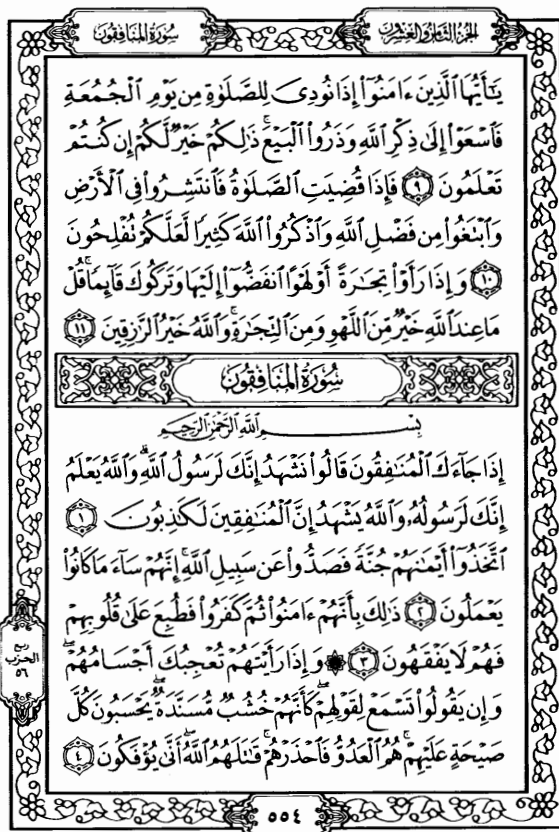 سُورَةُ المُنَافِقُون
الجُزْءُ الثَّامِنُ وَالعِشْرُون
يَـٰٓأَيُّهَا ٱلَّذِينَ ءَامَنُوٓا۟ إِذَا نُودِىَ لِلصَّلَوٰةِ مِن يَوْمِ ٱلْجُمُعَةِ
فَٱسْعَوْا۟ إِلَىٰ ذِكْرِ ٱللَّهِ وَذَرُوا۟ ٱلْبَيْعَ ۚ ذَٰلِكُمْ خَيْرٌ لَّكُمْ إِن كُنتُمْ
تَعْلَمُونَ ٩ فَإِذَا قُضِيَتِ ٱلصَّلَوٰةُ فَٱنتَشِرُوا۟ فِى ٱلْأَرْضِ
وَٱبْتَغُوا۟ مِن فَضْلِ ٱللَّهِ وَٱذْكُرُوا۟ ٱللَّهَ كَثِيرًا لَّعَلَّكُمْ تُفْلِحُونَ
١٠ وَإِذَا رَأَوْا۟ تِجَـٰرَةً أَوْ لَهْوًا ٱنفَضُّوٓا۟ إِلَيْهَا وَتَرَكُوكَ قَآئِمًا ۚ قُلْ
مَا عِندَ ٱللَّهِ خَيْرٌ مِّنَ ٱللَّهْوِ وَمِنَ ٱلتِّجَـٰرَةِ ۚ وَٱللَّهُ خَيْرُ ٱلرَّٰزِقِينَ ١١
سُورَةُ المُنَافِقُونَ
بِسْمِ ٱللَّهِ ٱلرَّحْمَـٰنِ ٱلرَّحِيمِ
إِذَا جَآءَكَ ٱلْمُنَـٰفِقُونَ قَالُوا۟ نَشْهَدُ إِنَّكَ لَرَسُولُ ٱللَّهِ ۗ وَٱللَّهُ يَعْلَمُ
إِنَّكَ لَرَسُولُهُۥ وَٱللَّهُ يَشْهَدُ إِنَّ ٱلْمُنَـٰفِقِينَ لَكَـٰذِبُونَ ١
ٱتَّخَذُوٓا۟ أَيْمَـٰنَهُمْ جُنَّةً فَصَدُّوا۟ عَن سَبِيلِ ٱللَّهِ ۚ إِنَّهُمْ سَآءَ مَا كَانُوا۟
يَعْمَلُونَ ٢ ذَٰلِكَ بِأَنَّهُمْ ءَامَنُوا۟ ثُمَّ كَفَرُوا۟ فَطُبِعَ عَلَىٰ قُلُوبِهِمْ
فَهُمْ لَا يَفْقَهُونَ ٣ ۞ وَإِذَا رَأَيْتَهُمْ تُعْجِبُكَ أَجْسَامُهُمْ ۖ
وَإِن يَقُولُوا۟ تَسْمَعْ لِقَوْلِهِمْ ۖ كَأَنَّهُمْ خُشُبٌ مُّسَنَّدَةٌ ۖ يَحْسَبُونَ كُلَّ
صَيْحَةٍ عَلَيْهِمْ ۚ هُمُ ٱلْعَدُوُّ فَٱحْذَرْهُمْ ۚ قَـٰتَلَهُمُ ٱللَّهُ ۖ أَنَّىٰ يُؤْفَكُونَ ٤
ربع
الحزب
٥٦
٥٥٤